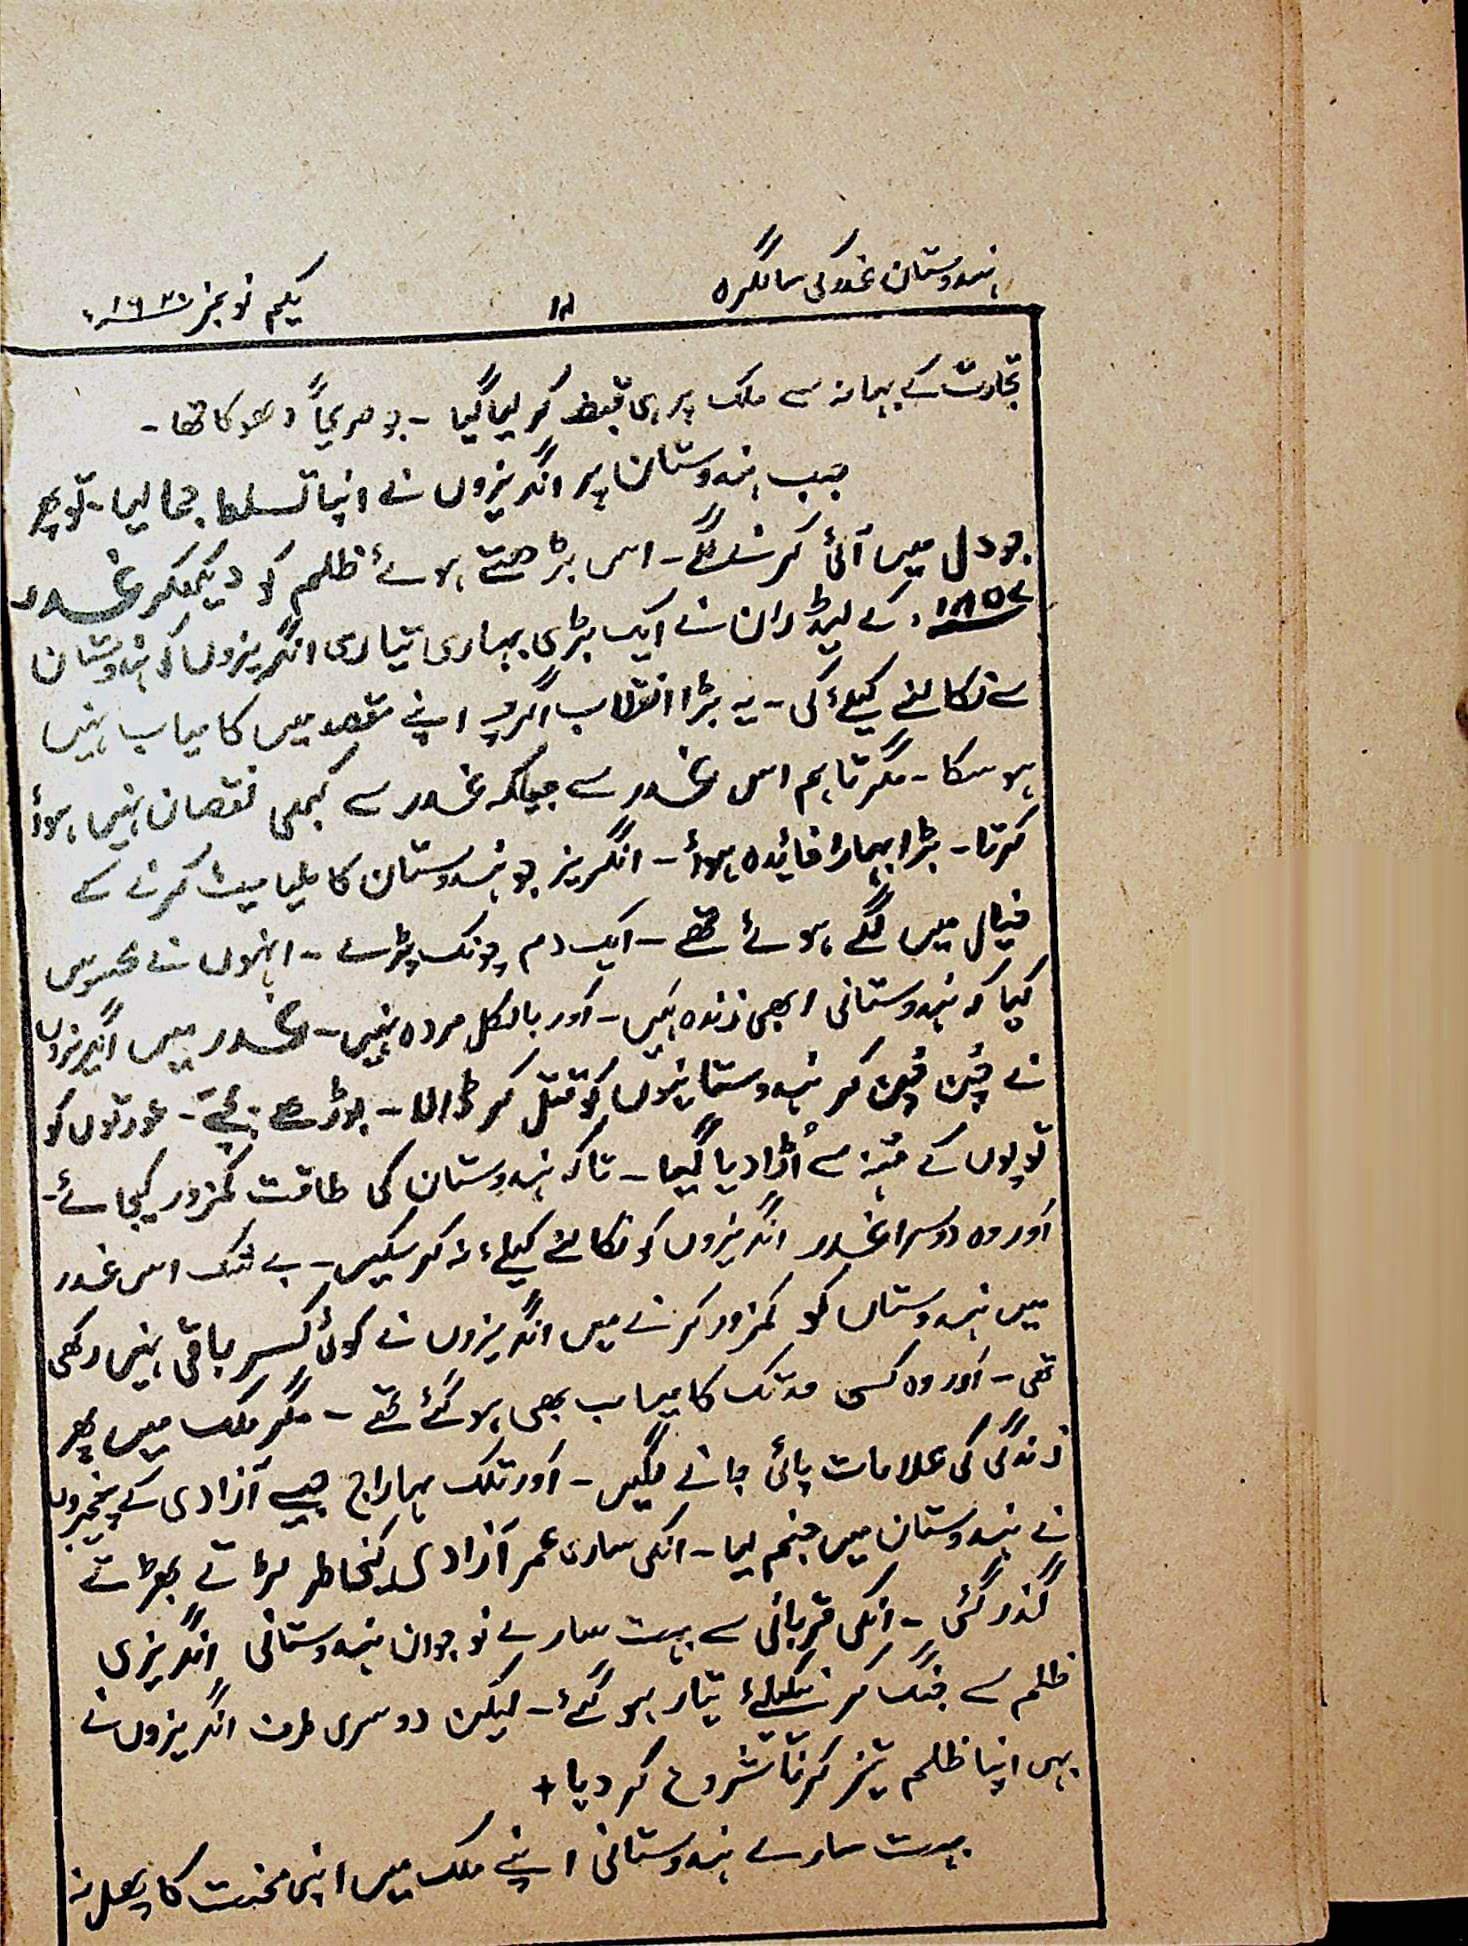 ہندوستان غدر کی سالگرہ
۱۸
یکم نومبر
تجارت کے بہانہ سے ملک پر ہی قبضہ کر لیا گیا - جو صریحاً دھوکا تھا -
جب ہندوستان پر انگریزوں نے اپنا تسلط جما لیا - تو پھر
جو دل میں آئی کرنے لگے - اس بڑھتے ہوئے ظلم کو دیکھکر غدر
۱۸۵۷ء کے لیڈران نے ایک بڑی بہاری تیاری انگریزوں کو ہندوستان
سے نکالنے کیلئے کی - یہ بڑا انقلاب اگرچہ اپنے مقصد میں کامیاب نہیں
ہو سکا - مگر تاہم اس غدر سے جیساکہ غدر سے کبھی نقصان نہیں ہوأ
کرتا - بڑا بہارا فائدہ ہوأ - انگریز جو ہندوستان کا ملیا میٹ کرنے کے
خیال میں لگے ہوئے تھے - ایک دم چونک پڑے - انہوں نے محسوس
کیا کہ ہندوستانی ابھی زندہ ہیں - اور بالکل مردہ نہیں - غدر میں انگریزوں
نے چُن چُن کر ہندوستانیوں کو قتل کر ڈالا - بوڑھے بچے - عورتوں کو
توپوں کے مُنہ سے اُڑا دیا گیا - تاکہ ہندوستان کی طاقت کمزور کیجائے -
اور وہ دوسرا غدر انگریزوں کو نکالنے کیلئے نہ کر سکیں - بے شک اس غدر
میں ہندوستاں کو کمزور کرنے میں انگریزوں نے کوئی کسر باقی نہیں رکھی
تھی - اور وہ کسی حد تک کامیاب بھی ہو گئے تھے - مگر ملک میں پھر
زندگی کی علامات پائی جانے لگیں - اور تلک مہاراج جیسے آزادی کے پیغمبروں
نے ہندوستان میں جنم لیا - انکی ساری عمر آزادی کیخاطر لڑاتے بھڑاتے
گذر گئی - انکی قربانی سے بہت سارے نوجوان ہندوستانی انگریزی
ظلم سے جنگ کرنیکیلئے تیار ہو گئے - لیکن دوسری طرف انگریزوں نے
بہی اپنا ظلم تیز کرنا شروع کر دیا +
بہت سارے ہندوستانی اپنے ملک میں اپنی محنت کا پھل نہ